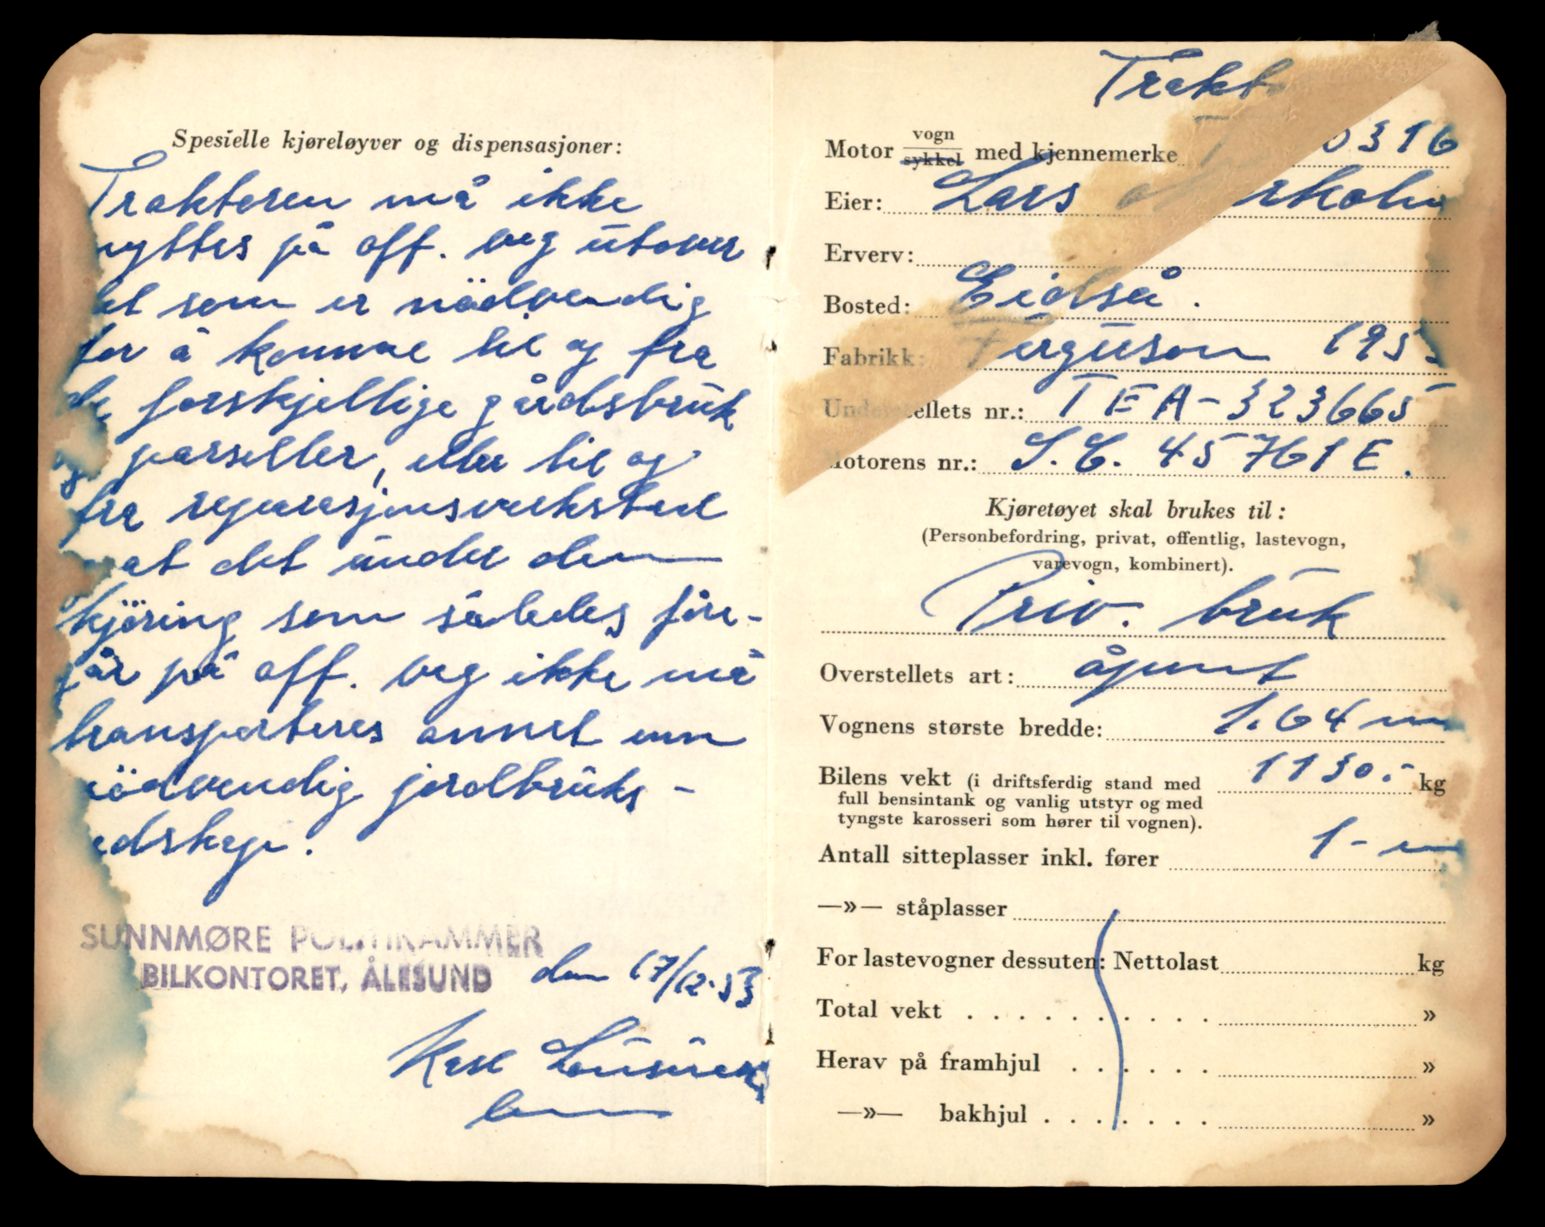 Spesielle kjøreløyver og dispensasjoner:
Traktoren må ikke
nyttes på off. veg utover
det som er nödvendig
for å komme til og fra
de forskjellige gårdsbruk
og parseller, eller til og
fra reparasjonsverksted
at det under den
kjöring som således fore-
går på off. veg ikke må
transporteres annet enn
nödvendig jordbruks-
redskap.
SUNNMØRE POLITIKAMMER
BILKONTORET, ÅLESUND den 17/12-53
Trakt
Motor vogn sykkel med kjennemerke 0316
Eier: Lars
Erverv:
Bosted: Eidså.
Fabrikk: Ferguson 195
Understellets nr.: TEA-323665
Motorens nr.: S.C. 45761E.
Kjøretøyet skal brukes til:
(Personbefordring, privat, offentlig, lastevogn,
varevogn, kombinert).
Priv. bruk
Overstellets art: åpent
Vognens største bredde: 1.64 m
Bilens vekt (i driftsferdig stand med 1130.- kg
full bensintank og vanlig utstyr og med
tyngste karosseri som hører til vognen).
Antall sitteplasser inkl. fører 1-
—»— ståplasser
For lastevogner dessuten: Nettolast kg
Total vekt . . . . . . . . . . »
Herav på framhjul . . . . . . »
—»— bakhjul . . . . . . . »